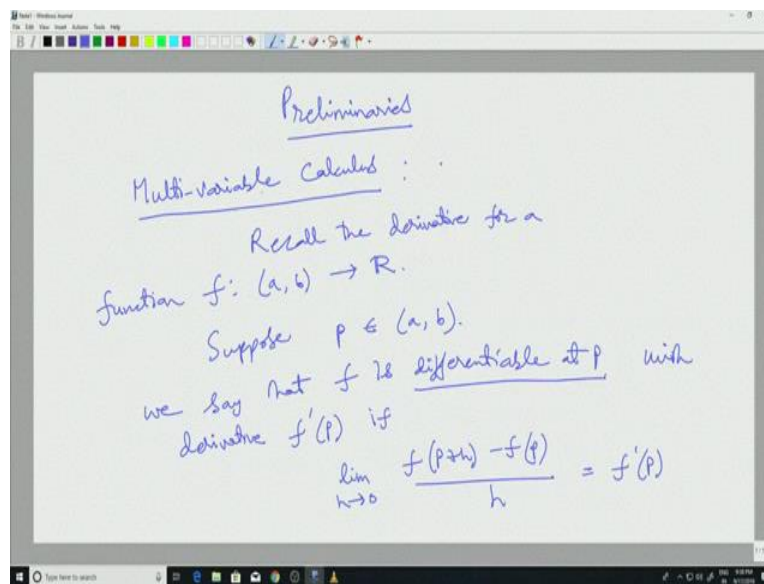 Note1 - Windows Journal
File Edit View Insert Actions Tools Help
Preliminaries
Multi-variable Calculus :
Recall the derivative for a
function f: (a, b) → R.
Suppose p ∈ (a, b).
we say that f is differentiable at p with
derivative f'(p) if
lim h→0 (f(p+h) - f(p)) / h = f'(p)
Type here to search